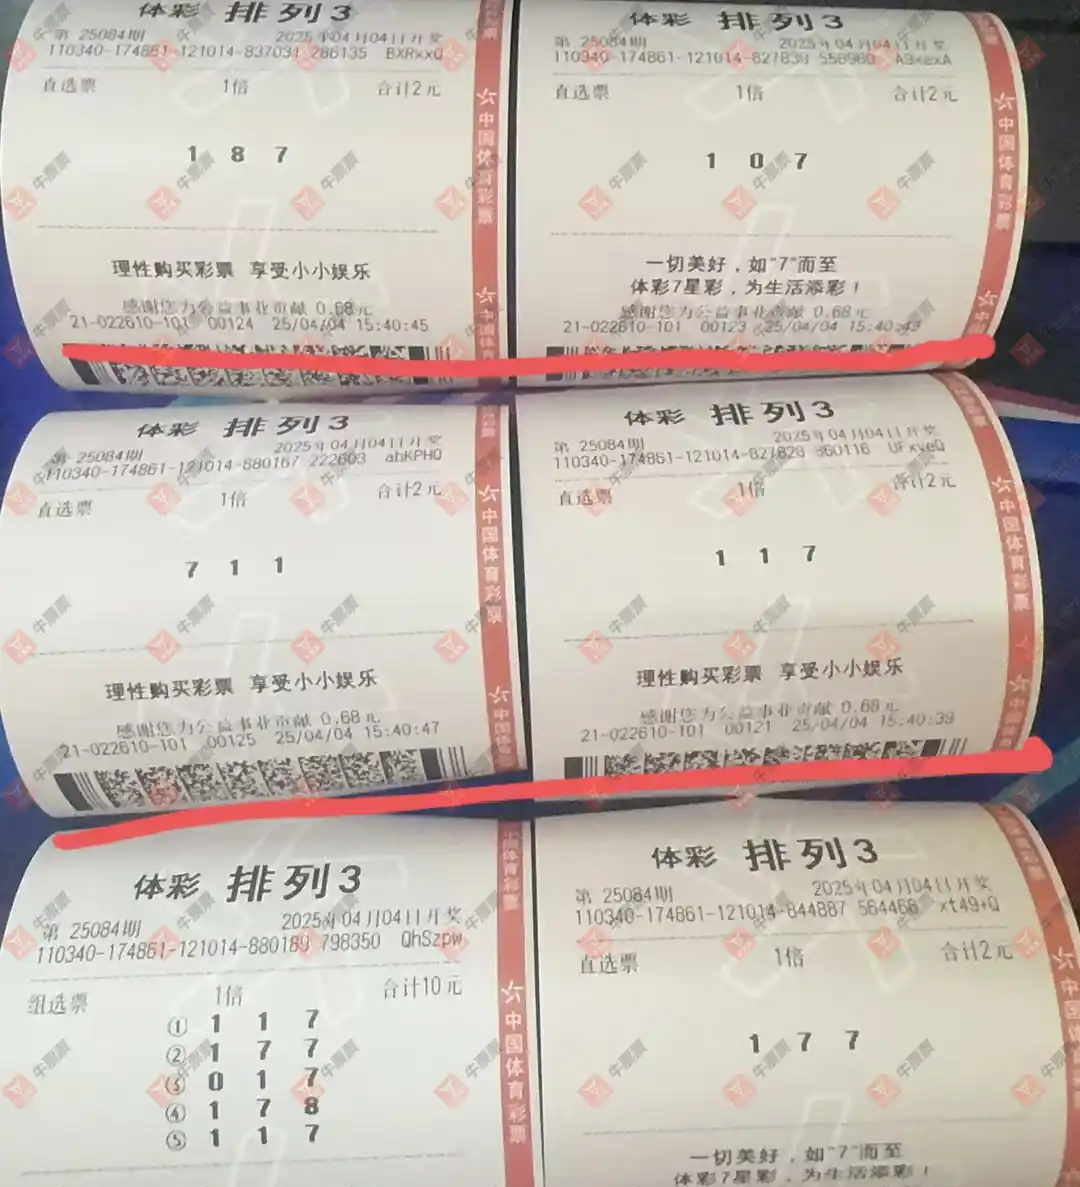 体彩 排列3
第 25084期 2025年04月04日开奖
110340-174861-121014-837031 286135 BXRxxQ
直选票 1倍 合计2元
1 8 7
理性购买彩票 享受小小娱乐
感谢您为公益事业贡献 0.68元
21-022610-101 00124 25/04/04 15:40:45
中国体育彩票
体彩 排列3
第 25084期 2025年04月04日开奖
110340-174861-121014-827839 558960
直选票 1倍 合计2元
1 0 7
一切美好，如"7"而至
体彩7星彩，为生活添彩！
感谢您为公益事业贡献 0.68元
21-022610-101 00123 25/04/04 15:40:43
中国体育彩票
体彩 排列3
第 25084期 2025年04月04日开奖
110340-174861-121014-880167 222603 abKPHQ
直选票 1倍 合计2元
7 1 1
理性购买彩票 享受小小娱乐
感谢您为公益事业贡献 0.68元
21-022610-101 00125 25/04/04 15:40:47
中国体育彩票
体彩 排列3
第 25084期 2025年04月04日开奖
110340-174861-121014-827828 860116 UFxveQ
直选票 1倍 合计2元
1 1 7
理性购买彩票 享受小小娱乐
感谢您为公益事业贡献 0.68元
21-022610-101 00121 25/04/04 15:40:39
中国体育彩票
体彩 排列3
第 25084期 2025年04月04日开奖
110340-174861-121014-880189 798350 QhSzpw
组选票 1倍 合计10元
① 1 1 7
② 1 7 7
③ 0 1 7
④ 1 7 8
⑤ 1 1 7
中国体育彩票
体彩 排列3
第 25084期 2025年04月04日开奖
110340-174861-121014-844887 564468 xt49+Q
直选票 1倍 合计2元
1 7 7
一切美好，如"7"而至
体彩7星彩，为生活添彩！
中国体育彩票
牛票票